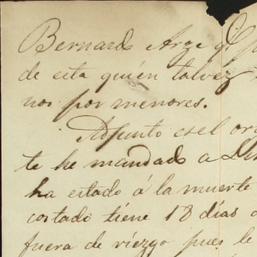 Bernardo Arze q!
de esta quien talvez
nos por menores.
Apunto esel or
te he mandado a
ha estado á la muerte
costado tiene 18 dias
fuera de riezgo pues le